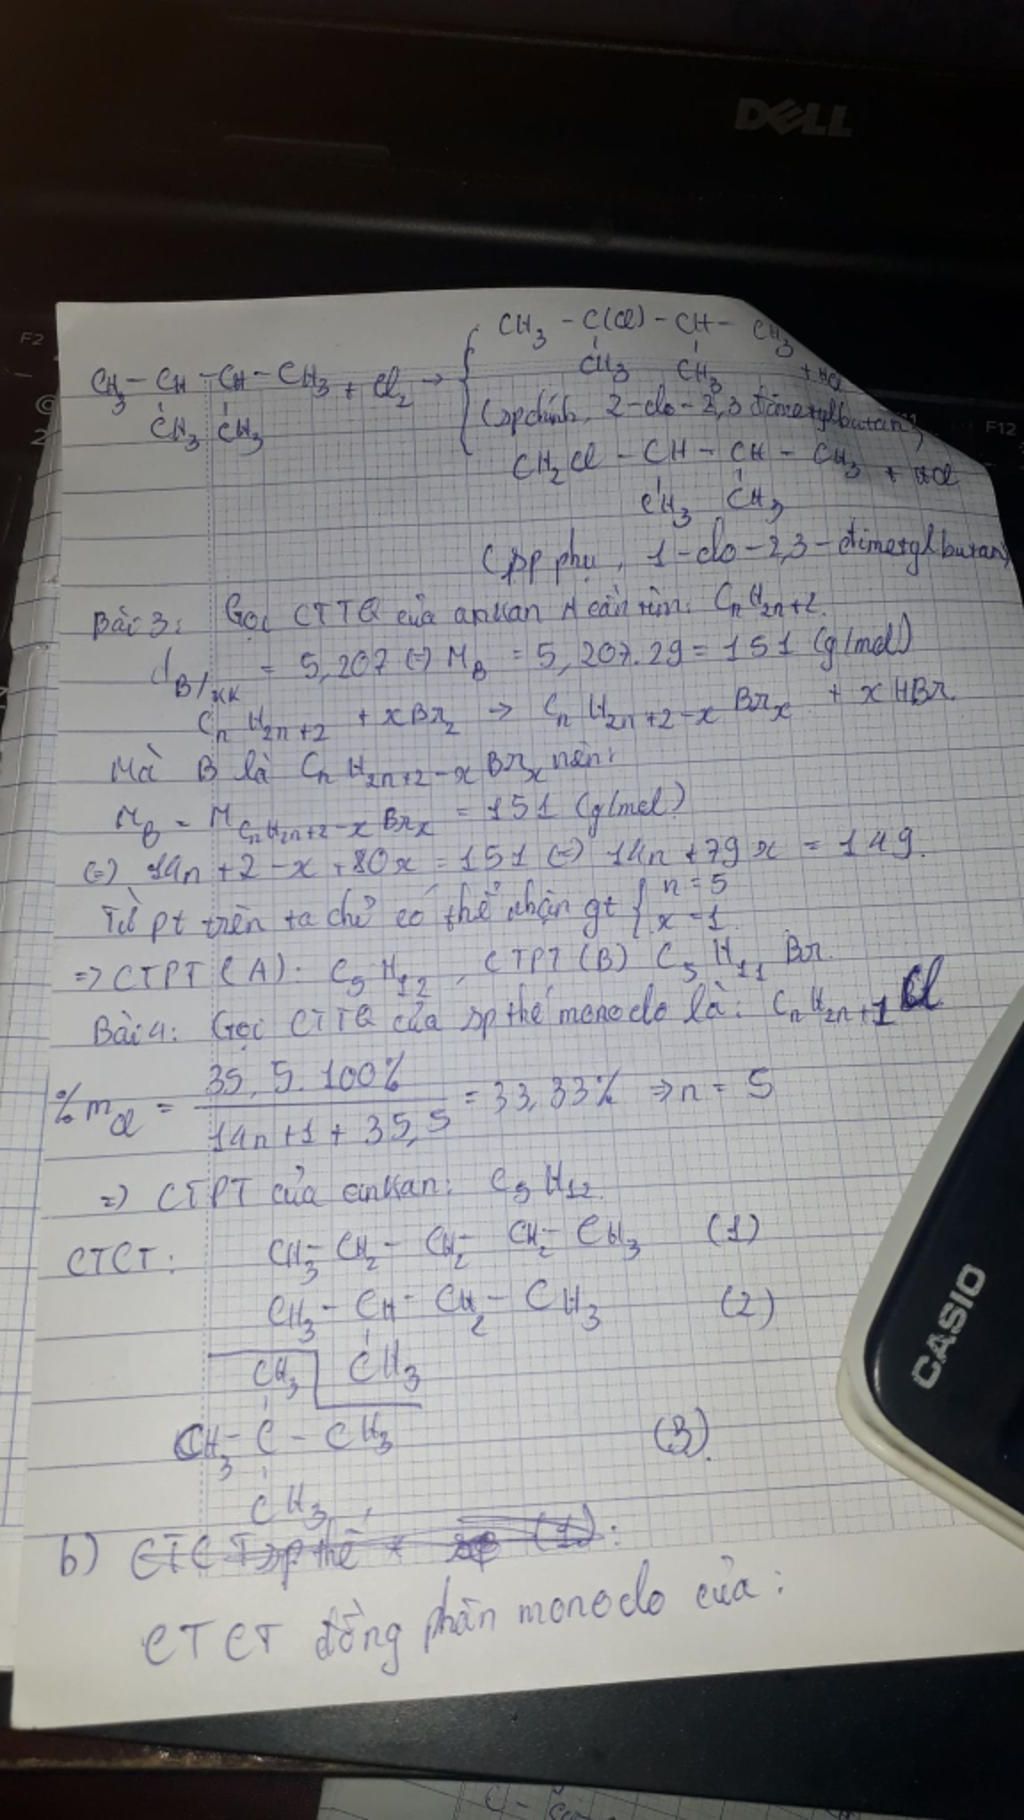 DELL
F2
F12
CH3 - C(Cl) - CH - CH3
CH3 CH3 + HCl
CH3 - CH - CH - CH3 + Cl2 →
CH3 CH3
(sp chính, 2-clo-2,3 đimetylbutan)
CH2Cl - CH - CH - CH3 + HCl
CH3 CH3
(sp phụ, 1-clo-2,3-đimetylbutan)
Bài 3: Gọi CTTQ của ankan A cần tìm: CnH2n+2.
dB/KK = 5,207 (=) MB = 5,207.29 = 151 (g/mol)
CnH2n+2 + xBr2 → CnH2n+2-xBrx + xHBr.
Mà B là CnH2n+2-xBrx nên:
MB = MCnH2n+2-xBrx = 151 (g/mol)
(=) 14n + 2 - x + 80x = 151 (=) 14n + 79x = 149.
Từ pt trên ta chỉ có thể nhận gt { n = 5
x = 1
=> CTPT (A): C5H12, CTPT (B) C5H11Br.
Bài 4: Gọi CTTQ của sp thế monoclo là: CnH2n+1Cl
%mCl = 35,5.100% / 14n+1+35,5 = 33,33% => n = 5
=) CTPT của ankan: C5H12.
CTCT: CH3 - CH2 - CH2 - CH2 - CH3 (1)
CH3 - CH - CH2 - CH3 (2)
CH3
CH3
CH3 - C - CH3 (3).
CH3
b) CTCT sp thế (1):
CTCT đồng phân monoclo của:
CASIO